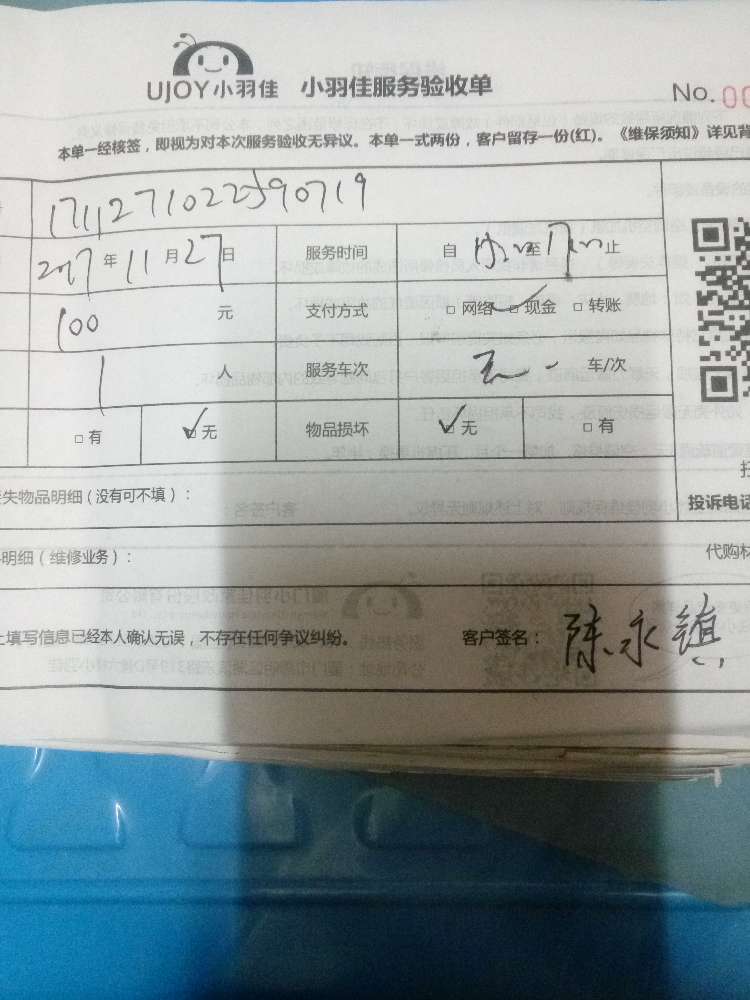 UJOY小羽佳 小羽佳服务验收单
No. 00
本单一经核签，即视为对本次服务验收无异议。本单一式两份，客户留存一份(红)。《维保须知》详见背
1711271022590719
2017年11月27日 服务时间 自 至 止
100 元 支付方式 □ 网络 □ 现金 □ 转账
1 人 服务车次 车/次
□ 有 □ 无 物品损坏 □ 无 □ 有
失物品明细（没有可不填）：
投诉电话
明细（维修业务）：
代购材
上填写信息已经本人确认无误，不存在任何争议纠纷。 客户签名：陈永镇